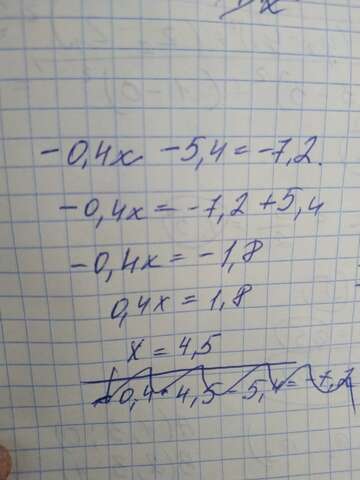 -0,4x -5,4 = -7,2.
-0,4x = -7,2 + 5,4
-0,4x = -1,8
0,4x = 1,8
x = 4,5
0,4 · 4,5 - 5,4 = -7,2